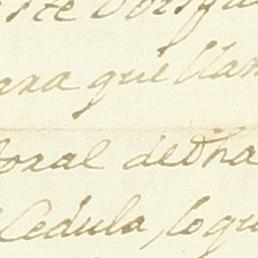 este
para que llam
toral de dha
Cedula, lo qu